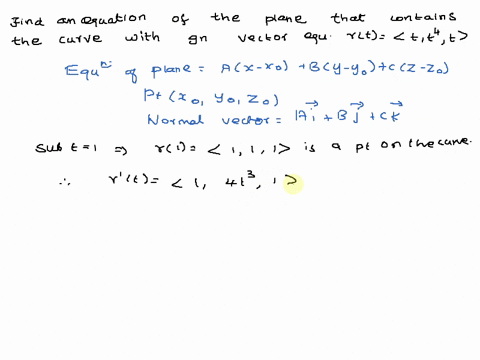 Find an equation of the plane that contains
the curve with gn vector equ. r(t) = < t, t⁴, t >
Equⁿ: of plane = A(x-x₀) + B(y-y₀) + C(z-z₀)
Pt (x₀, y₀, z₀)
Normal vector = Ai⃗ + Bj⃗ + Ck⃗
Sub t=1 ⇒ r(1) = < 1, 1, 1 > is a pt on the curve.
∴ r'(t) = < 1, 4t³, 1 >